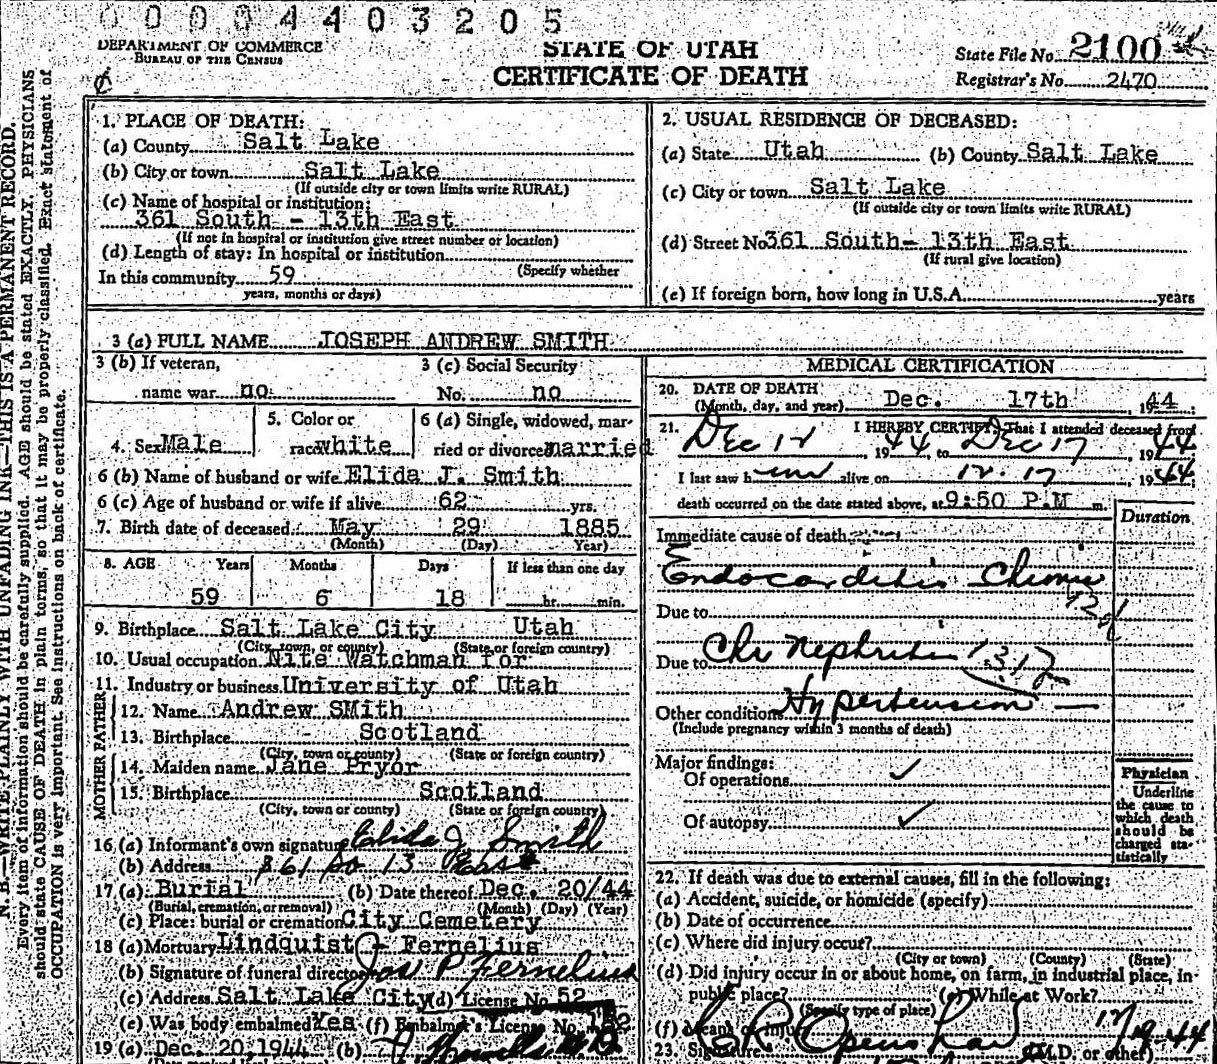 0 0 0 4 4 0 3 2 0 5
DEPARTMENT OF COMMERCE
BUREAU OF THE CENSUS
STATE OF UTAH
CERTIFICATE OF DEATH
State File No. 2100
Registrar's No. 2470
N. B.—WRITE PLAINLY WITH UNFADING INK—THIS IS A PERMANENT RECORD.
Every item of information should be carefully supplied. AGE should be stated EXACTLY. PHYSICIANS
should state CAUSE OF DEATH in plain terms, so that it may be properly classified. Exact statement of
OCCUPATION is very important. See instructions on back of certificate.
1. PLACE OF DEATH:
(a) County Salt Lake
(b) City or town Salt Lake
(If outside city or town limits write RURAL)
(c) Name of hospital or institution:
361 South - 13th East
(If not in hospital or institution give street number or location)
(d) Length of stay: In hospital or institution
(Specify whether
In this community 59
years, months or days)
2. USUAL RESIDENCE OF DECEASED:
(a) State Utah (b) County Salt Lake
(c) City or town Salt Lake
(If outside city or town limits write RURAL)
(d) Street No 361 South- 13th East
(If rural give location)
(e) If foreign born, how long in U.S.A. years
3 (a) FULL NAME JOSEPH ANDREW SMITH
3 (b) If veteran,
name war no
3 (c) Social Security
No. no
4. Sex Male
5. Color or
race white
6 (a) Single, widowed, mar-
ried or divorced married
6 (b) Name of husband or wife Elida J. Smith
6 (c) Age of husband or wife if alive 62 yrs.
7. Birth date of deceased May 29 1885
(Month) (Day) Year)
8. AGE Years Months Days If less than one day
59 6 18 hr. min.
9. Birthplace Salt Lake City Utah
(City, town, or county) (State or foreign country)
10. Usual occupation Nite Watchman for
11. Industry or business University of Utah
FATHER
12. Name Andrew SMith
13. Birthplace Scotland
(City, town or county) (State or foreign country)
MOTHER
14. Maiden name Jane Pryor
15. Birthplace Scotland
(City, town or county) (State or foreign country)
16 (a) Informant's own signature Elida J Smith
(b) Address 361 So 13 East
17 (a) Burial (b) Date thereof Dec. 20/44
(Burial, cremation, or removal) (Month) (Day) (Year)
(c) Place: burial or cremation City Cemetery
18 (a) Mortuary Lindquist & Fernelius
(b) Signature of funeral director Jos P Fernelius
(c) Address Salt Lake City (d) License No. 52
(e) Was body embalmed Yes (f) Embalmer's License No.
19 (a) Dec. 20, 1944 (b)
MEDICAL CERTIFICATION
20. DATE OF DEATH
(Month, day, and year) Dec. 17th, 1944;
21. I HEREBY CERTIFY, That I attended deceased from
Dec 12, 1944, to Dec 17, 1944
I last saw h im alive on 12-17, 1944
death occurred on the date stated above, at 9:50 P.M m.
Duration
Immediate cause of death
Endocarditis Chronic
92d
Due to
Due to Chr Nephritis 1312
Hypertension —
Other conditions
(Include pregnancy within 3 months of death)
Major findings:
Of operations ✓
Of autopsy ✓
Physician
Underline
the cause to
which death
should be
charged sta-
tistically
22. If death was due to external causes, fill in the following:
(a) Accident, suicide, or homicide (specify)
(b) Date of occurrence
(c) Where did injury occur?
(City or town) (County) (State)
(d) Did injury occur in or about home, on farm, in industrial place, in-
public place? (e) While at Work?
(Specify type of place)
(f) Means of injury
23. Signature Openshaw 12/19-44